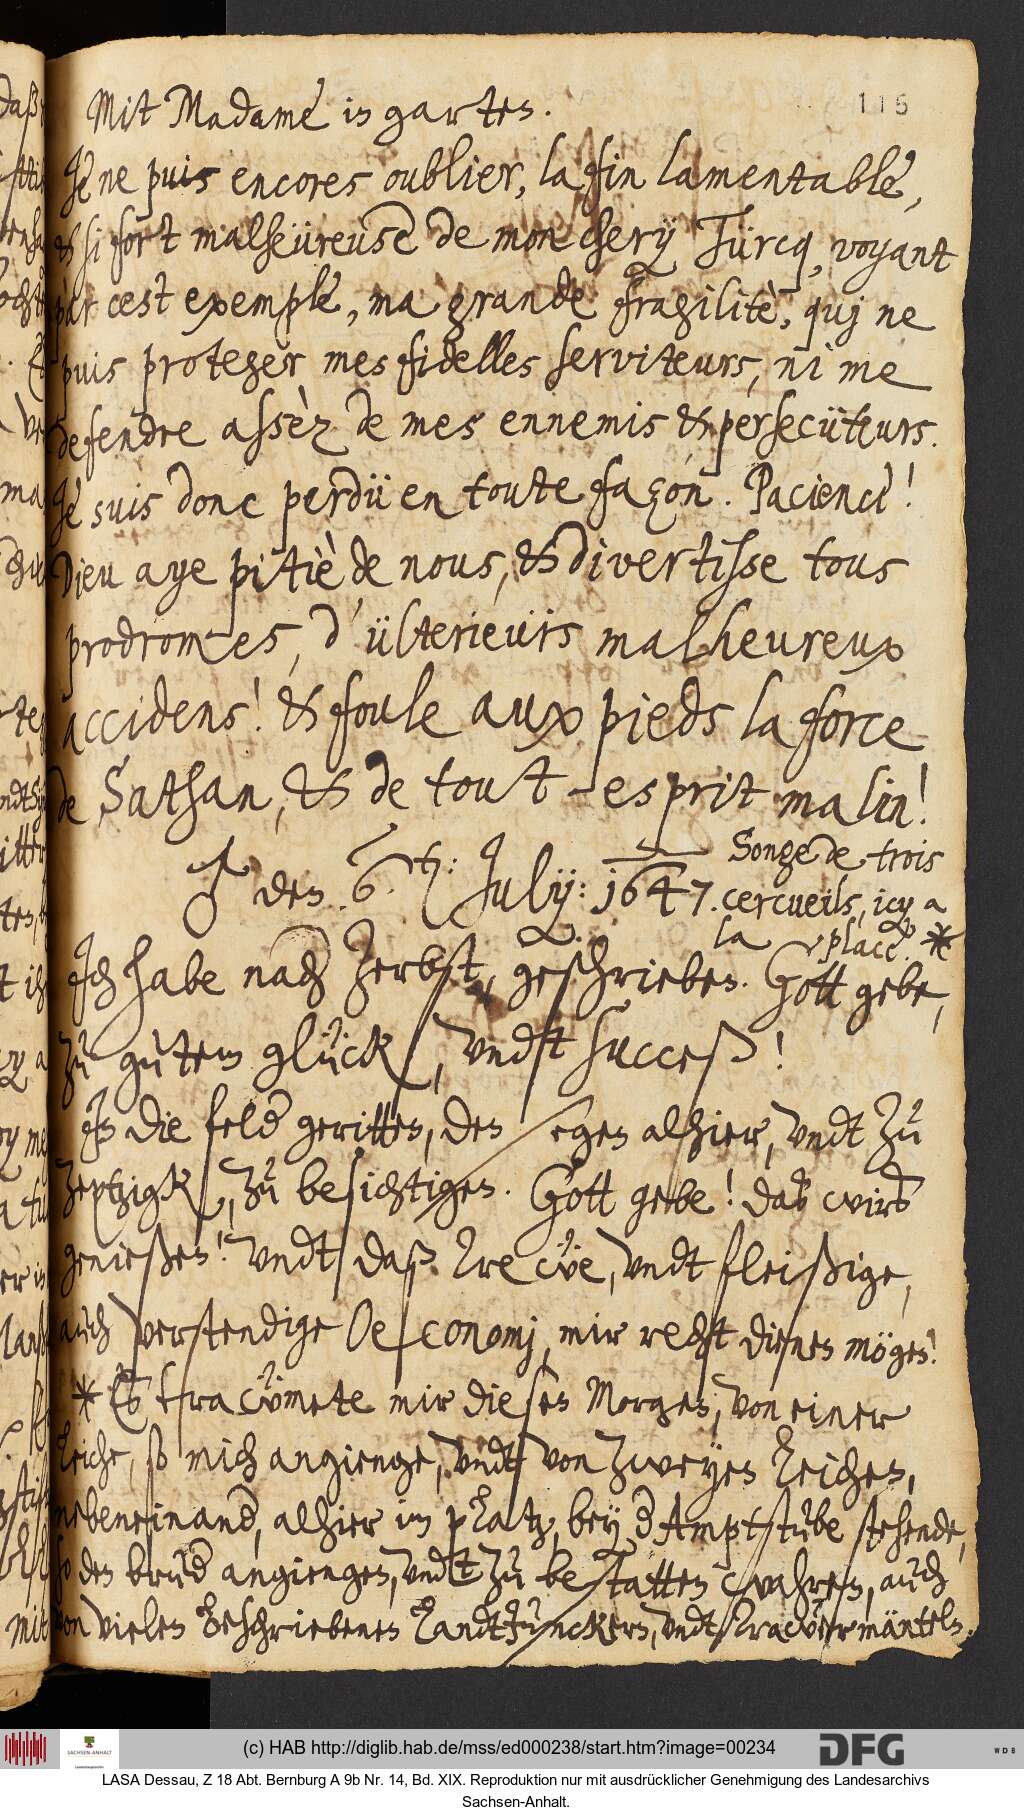 116
Mit Madame in garten.
Je ne puis encores oublier, la fin lamentable,
& si fort malheüreuse de mon chery Türcq, voyant
par cest exemple, ma grande fragilitè, quj ne
puis proteger mes fidelles serviteurs, ni me
defendre assèz de mes ennemis & persecüteurs.
Je suis donc perdü en toute façon. Pacience!
Dieu aye pitiè de nous, & divertisse tous
prodromes, d'ülterieürs malheureux
accidens! & foule aux pieds la force
de Sathan, & de tout esprit malin!
♂ den 6. t: Julij: 1647.
Songe de trois
cercueils, icy a
la place. *
Ich habe nach Zerbst, geschrieben. Gott gebe,
zu gutem glück, vndt succeß!
In die felder geritten, den segen alhier, vndt zu
Zeptzigk, zu besichtigen. Gott gebe! das wirs
genießen! vndt daß trewe, vndt fleißige,
auch verstendige Oeconomj mir recht dienen mögen!
* Es trawmete mir diesen Morgen, von einer
Leiche, so mich angienge, vndt von zweyen Leichen,
nebeneinand, alhier im platz, bey d Amptstube stehende,
so den brud angiengen, vndt zu bestatten wahren, auch
von vielen beschriebenen Landt Junckern, vndt trawermänteln.
(c) HAB http://diglib.hab.de/mss/ed000238/start.htm?image=00234
SACHSEN-ANHALT
DFG
WDB
LASA Dessau, Z 18 Abt. Bernburg A 9b Nr. 14, Bd. XIX. Reproduktion nur mit ausdrücklicher Genehmigung des Landesarchivs
Sachsen-Anhalt.